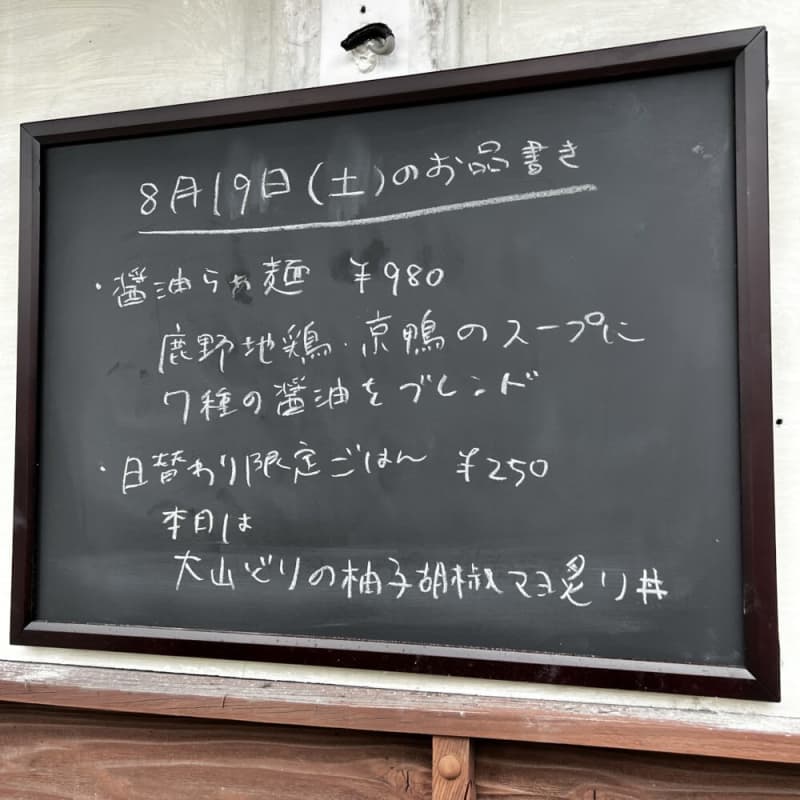 8月19日(土)のお品書き
・醤油らぁ麺 ¥980
鹿野地鶏・京鴨のスープに
7種の醤油をブレンド
・日替わり限定ごはん ¥250
本日は
大山どりの柚子胡椒マヨ炙り丼